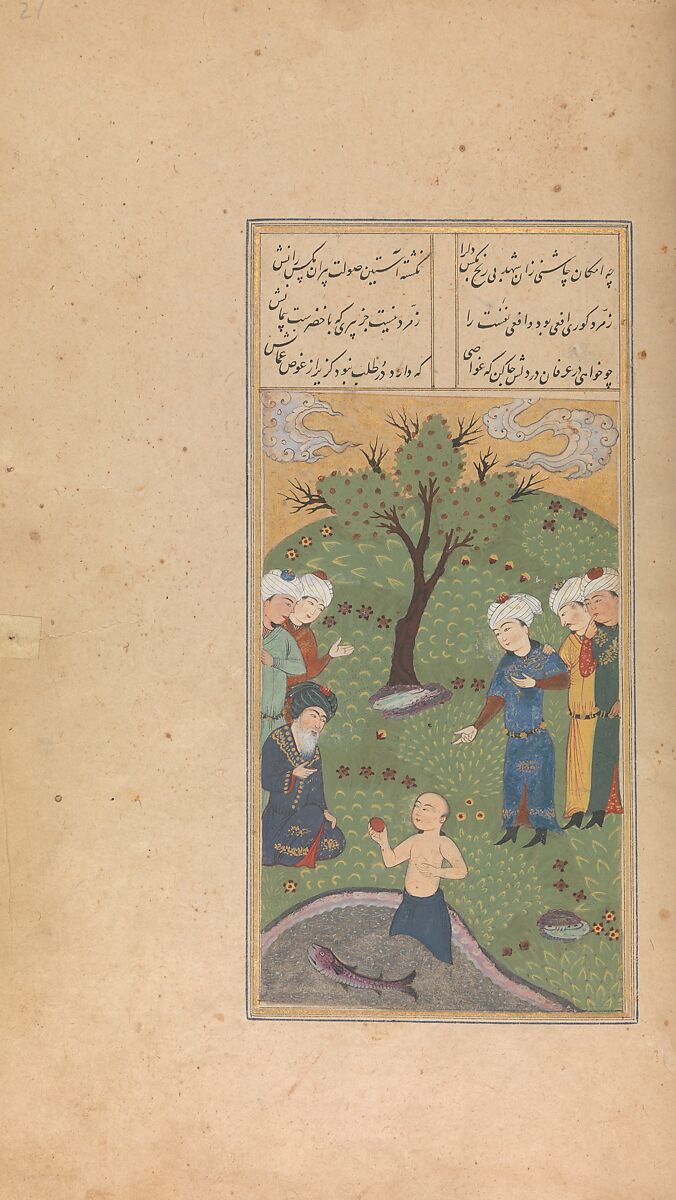 21
چه امکان چاشنی زان شهد بی رنج مکس دارا
نگشته آستین صولت پیران مکس رانش
زمرد کوری افعی بود وافعی نفست را
زمرد نیست جز پیری که با خضرست پیمانش
چو خواهی در عرفان در دلش جا کن که غواصی
که دارد در طلب نبود کزیر از غوص عمانش